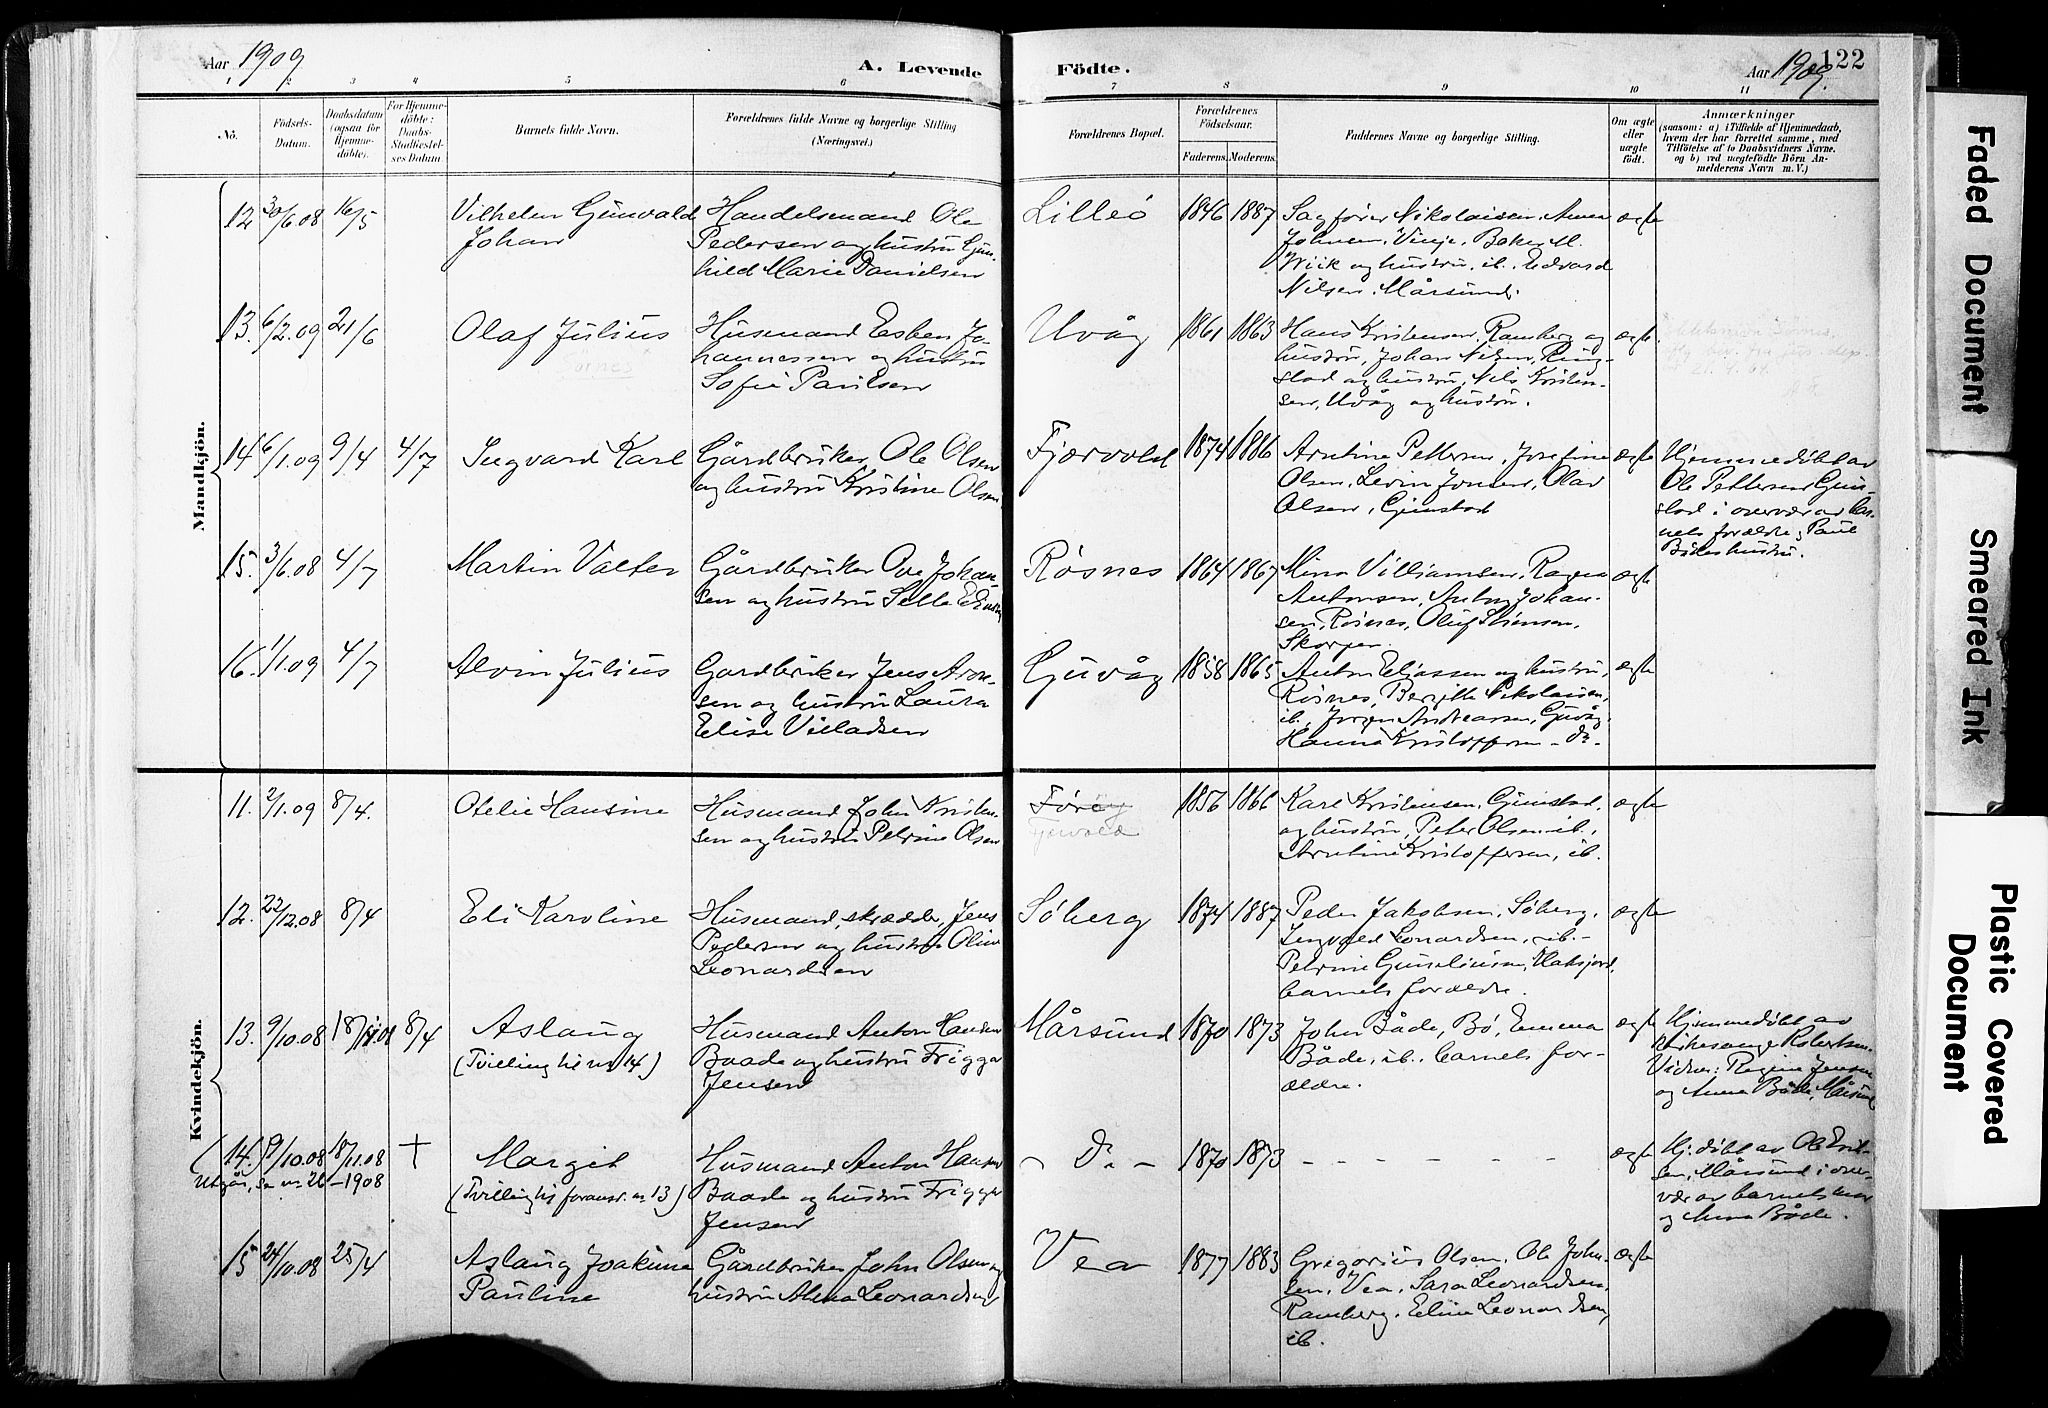 Aar 1909
A. Levende
Födte.
Aar 1909.
122
1 2 3 4 5 6 7 8 9 10 11
Nö.
Födsels-
Datum.
Daabsdatum
(ogsaa for
Hjemme-
döbte).
For Hjemme-
döbte:
Daabs-
Stadfæstel-
ses Datum
Barnets fulde Navn.
Forældrenes fulde Navne og borgerlige Stilling
(Næringsvei.)
Forældrenes Bopæl.
Forældrenes
Födselsaar.
Faderens. Moderens.
Faddernes Navne og borgerlige Stilling.
Om ægte
eller
uægte
födt.
Anmærkninger
(saasom: a) i Tilfælde af Hjemmedaab,
hvem der har forrettet samme, med
Tilföielse af to Daabsvidners Navne,
og b) ved uægtefödte Börn An-
melderens Navn m. V.)
Mandkjön.
12 30/6.08 16/5
Vilhelm Gunvald
Johan
Handelsmand Ole
Pedersen og hustru Gun-
hild Marie Danielsen
Lilleö
1846 1887
Sagfører Nikolaisen, Anna
Johnsen, Vinje, Baker M.
Wiik og hustru, ib., Edvard
Nilsen, Mårsund.
ægte
13. 6/2.09 21/6
Olaf Julius
Husmand Esben Jo-
hannessen og hustru
Sofie Paulsen
Uvåg
1861 1863
Hans Kristensen, Ramberg og
hustru, Johan Nilsen, Ring-
stad og hustru, Nils Kristen-
sen, Uvåg og hustru.
ægte.
14 6/1.09 9/4 4/7
Ingvard Karl
Gårdbruker Ole Olsen
og hustru Kristine Olsen
Fjærvold
1874 1886
Arntine Pettersen, Josefine
Olsen, Levin Jensen, Olav
Olsen, Gimstad
ægte
Hjemmedöbt av
Ole Pettersen Gim-
stad i overvær av bar-
nets forældre, Paul
Bödes hustru.
15. 3/6.08 4/7
Martin Valter
Gårdbruker Ove Johan-
sen og hustru
Rösnes
1864 1867
Mina Villiamsen, Ragna
Antonsen, Anton Johan-
sen, Rösnes, Oluf Simonsen,
Skorpen.
ægte
16. 1/1.09 4/7
Alvin Julius
Gardbruker Jens Aron-
sen og hustru Laura
Elise Villadsen
Guvåg
1858 1865
Anton Eliassen og hustru,
Rösnes, Bergitte Nikolaisen,
ib., Jörgen Andreassen, Guvåg,
Hanna Kristoffersen - do -
ægte
Kvindekjön.
11. 2/1.09 8/4.
Otelie Hansine
Husmand John Kristen-
sen og hustru Petrine Olsen
Föröy
Fjervold
1856 1866
Karl Kristensen, Gimstad,
og hustru, Peter Olsen ib.,
Arntine Kristoffersen, ib.
ægte
12. 22/12.08 8/4
Eli Karoline
Husmand, skrædder Jens
Pedersen og hustru Oline
Leonardsen
Söberg
1874 1887
Peder Jakobsen, Söberg,
Ingvald Leonardsen, -ib.-
Petrine,
barnets forældre.
ægte
13. 9/10.08 18/11.08 8/4
Aslaug
(Tvilling til nr 14)
Husmand Anton Hansen
Baade og hustru Frigga
Jensen
Mårsund
1870 1873
John Både, Bö, Emma
Både, ib., barnets for-
ældre.
ægte
Hjemmedöbt av
Robertsen.
Vidner: Regine Jensen
og Anna Både, Mårsund
(14.) 9/10.08 18/11.08 +
Utgår, se nr 26 - 1908
Margit
(Tvilling til foranst. nr 13)
Husmand Anton Hansen
Baade og hustru Frigga
Jensen
- Do. -
1870 1873
- - - - - -
ægte
Hj.döbt av Ole Erik-
sen, Mårsund i over-
vær av barnets mor
og Anna Både.
15 24/10.08 25/4
Aslaug Joakime
Pauline
Gårdbruker John Olsen og
hustru Alena Leonardsen
Vea
1877 1883
Gregorius Olsen, Ole John-
sen, Vea, Sara Leonardsen,
Ramberg, Eline Leonardsen,
ib.
ægte
Faded Document
Smeared Ink
Plastic Covered
Document